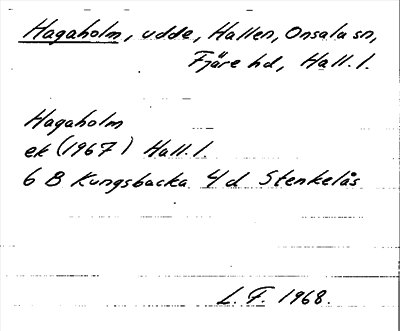 Hagaholm, udde, Hallen, Onsala sn,
Fjäre hd, Hall. l.
Hagaholm
ek (1967) Hall. l.
6 B Kungsbacka 4 d Stenkelås
L. F. 1968.